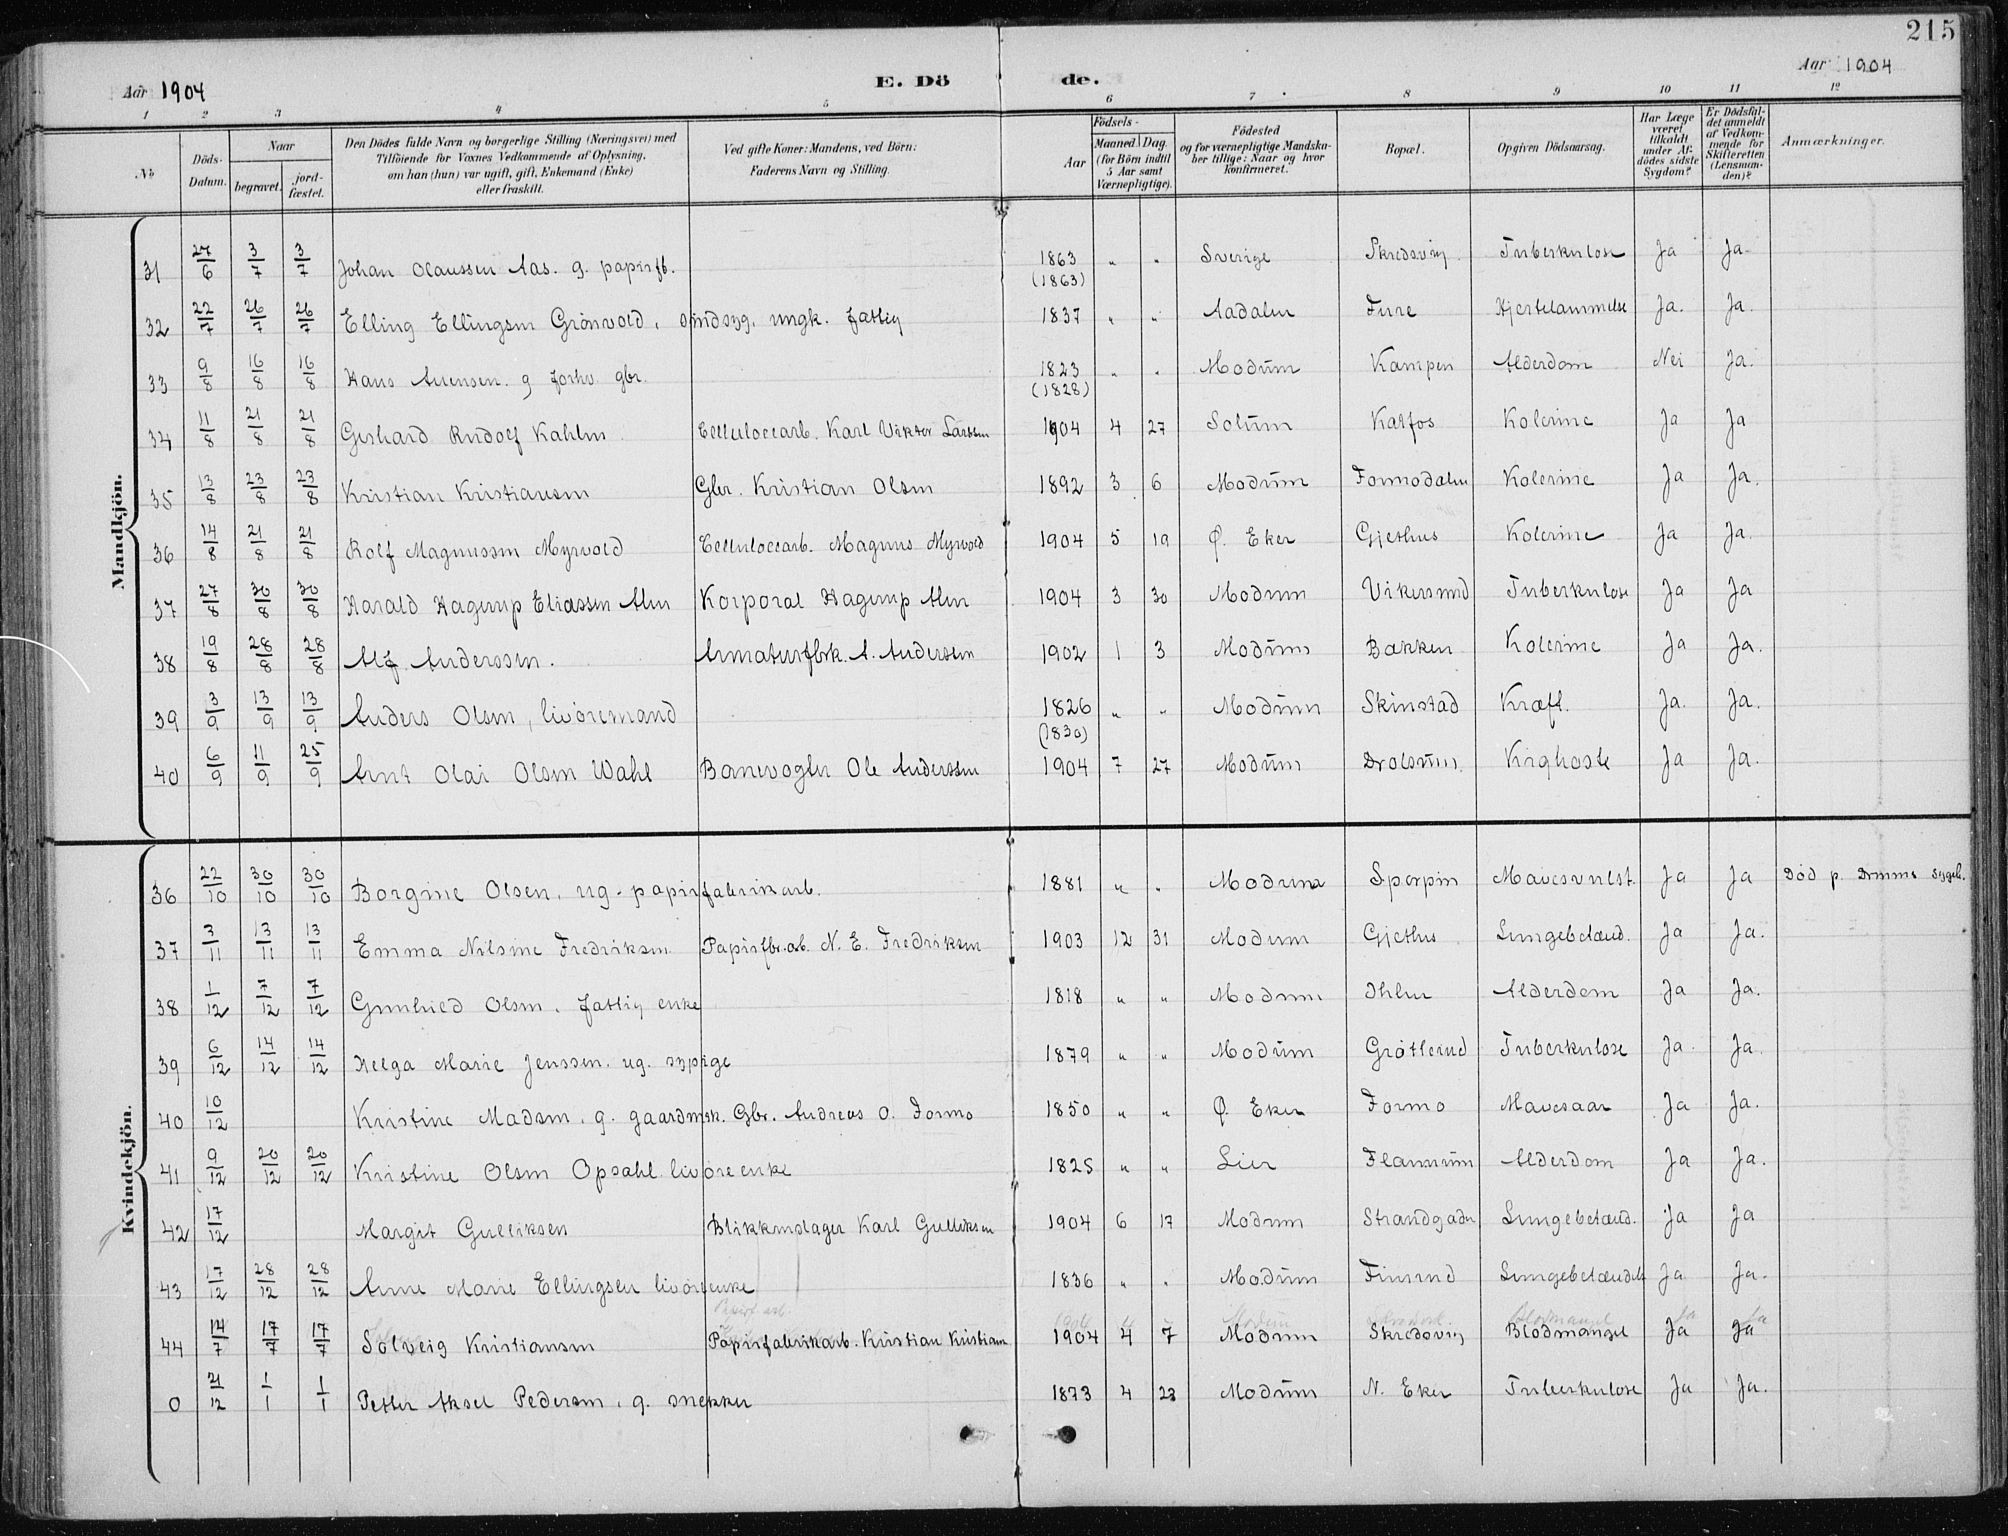 215
Aar 1904
E. Döde.
Aar 1904
1 2 3 4 5 6 7 8 9 10 11 12
No
Döds-Datum.
Naar
begravet.
jord-fæstet.
Den Dödes fulde Navn og borgerlige Stilling (Næringsvei) med Tilföiende for Voxnes Vedkommende af Oplysning, om han (hun) var ugift, gift, Enkemand (Enke) eller fraskilt.
Ved gifte Koner: Mandens, ved Börn: Faderens Navn og Stilling.
Födsels-
Aar
Maaned. Dag.
(for Börn indtil 5 Aar samt Værnepligtige).
Födested og for værnepligtige Mandskaber tillige: Naar og hvor konfirmeret.
Bopæl.
Opgiven Dödsaarsag.
Har Læge været tilkaldt under Afdödes sidste Sygdom?
Er Dödsfaldet anmeldt af Vedkommende for Skifteretten (Lensmanden)?
Anmærkninger.
Mandkjön.
31 27/6 3/7 3/7 Johan Olaussen Aas. g. papirfb. 1863 (1863) " " Sverige Skredsvig Tuberkulose Ja Ja.
32 22/7 26/7 26/7 Elling Ellingsen Grönvold, sindssyg, ungk. fattig 1837 " " Aadalen Fure Hjertelammelse Ja. Ja.
33 9/8 16/8 16/8 Hans Arensen. g forhv. gbr. 1823 (1828) " " Modum Kampen Alderdom Nei Ja.
34 11/8 21/8 21/8 Gerhard Rudolf Kahlm Cellulocearb. Karl Viktor Larsen 1904 4 27 Solum Katfos Kolerine Ja Ja
35 13/8 23/8 23/8 Kristian Kristiansen Gbr. Kristian Olsen 1892 3 6 Modum Formodalen Kolerine Ja Ja.
36 14/8 21/8 21/8 Rolf Magnussen Myrvold Cellulocearb. Magnus Myrvold 1904 5 19 Ø. Eker Gjethus Kolerine Ja Ja.
37 27/8 30/8 30/8 Harald Hagerup Eliassen Alm Korporal Hagerup Alm 1904 3 30 Modum Vikersund Tuberkulose Ja Ja
38 19/8 28/8 28/8 Alf Anderssen. Armaturfbrk. A. Anderssen 1902 1 3 Modum Bakken Kolerine Ja Ja.
39 3/9 13/9 13/9 Anders Olsen, livöremand 1826 (1830) " " Modum Skinstad Kræft. Ja. Ja.
40 6/9 11/9 25/9 Arnt Olai Olsen Wahl Banevogter Ole Anderssen 1904 7 27 Modum Drolsum. Kighoste Ja Ja.
Kvindekjön.
36 22/10 30/10 30/10 Borgine Olsen, ug. papirfabrikarb. 1881 " " Modum Sperpin Mavesvulst. Ja Ja Död p. Dramms sygeh.
37 3/11 13/11 13/11 Emma Nilsine Fredriksen Papirfbr.arb. N. E. Fredriksen 1903 12 31 Modum Gjethus Lungebetænd. Ja Ja.
38 1/12 7/12 7/12 Gunhild Olsen, fattig enke 1818 " " Modum Ihlen Alderdom Ja Ja.
39 6/12 14/12 14/12 Helga Marie Jenssen. ug. sypige 1879 " " Modum Grötlerud Tuberkulose Ja. Ja.
40 10/12 Kristine Madsen, g. gaardmsk. Gbr. Andreas O. Formo 1850 " " Ø. Eker Formo Mavesaar Ja Ja.
41 9/12 20/12 20/12 Kristine Olsen Opsahl. livöreenke 1825 " " Lier Flannum Alderdom Ja Ja.
42 17/12 Margit Gulliksen Blikkenslager Karl Gulliksen 1904 6 17 Modum Strandgaden Lungebetænd. Ja Ja
43 17/12 28/12 28/12 Anne Marie Ellingsen livöreenke 1836 " " Modum Finsrud Lungebetændelse Ja Ja.
44 14/7 17/7 17/7 Solveig Kristiansen Papirfabrikarb. Kristian Kristiansen 1904 4 7 Modum Skredsvig Blodmangel Ja Ja
0 21/12 1/1 1/1 Petter Aksel Pedersen, g. snekker 1873 4 23 Modum N. Eker Tuberkulose Ja Ja.